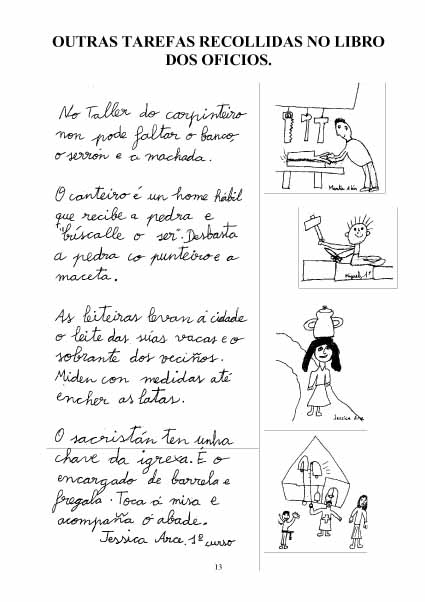 OUTRAS TAREFAS RECOLLIDAS NO LIBRO
DOS OFICIOS.
No Taller do carpinteiro
non pode faltar o banco,
o serrón e a machada.
O canteiro é un home hábil
que recibe a pedra e
"búscalle o ser". Desbasta
a pedra co punteiro e a
maceta.
As leiteiras levan á cidade
o leite das súas vacas e o
sobrante dos veciños.
Miden con medidas até
encher as latas.
O sacristán ten unha
chave da igrexa. É o
encargado de barrela e
fregala. Toca á misa e
acompaña ó abade.
Jessica Arce, 1º curso
Miguel, 1º
Jessica Arce
13